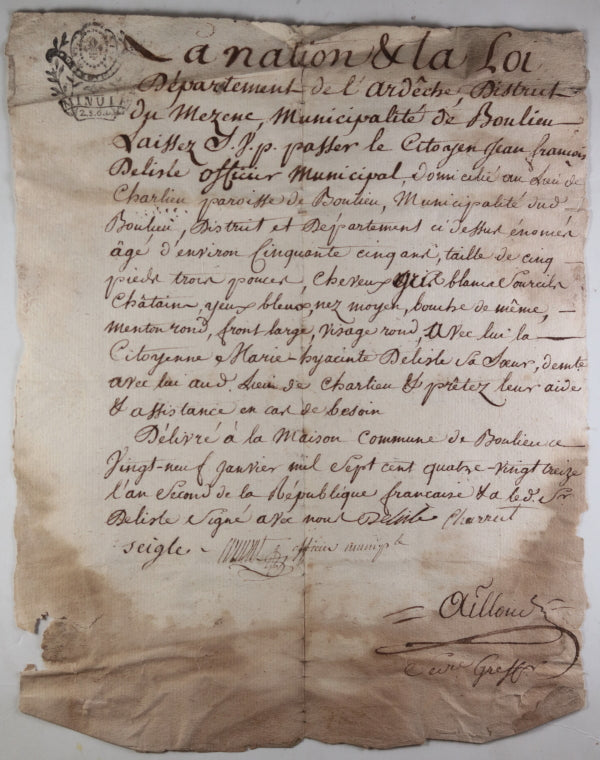 MINUTE
2.S.6.d
La nation & la Loi
Département de l'ardêche, District
du Mezenc, Municipalité de Boulieu
Laissez passer le Citoyen Jean françois
Delisle officier Municipal, domicilié au Lieu de
Charlieu paroisse de Boulieu, Municipalité dud.
Boulieu, District et Département ci dessus énoncés
âgé d'environ Cinquante cinq ans, taille de cinq
pieds trois pouces, cheveux gris blancs Sourcils
Châtains, yeux bleux, nez moyen, bouche de même,
menton rond, front large, visage rond, Avec lui la
Citoyenne Marie-hyacinte Delisle Sa Sœur, demte
avec lui aud. Lieu de Charlieu & prêtez leur aide
& assistance en cas de besoin
Délivré à la Maison Commune de Boulieu ce
Vingt-neuf Janvier mil Sept cent quatre-vingt treize
l'an Second de la République française & a led. Sr
Delisle Signé avec nous Delisle Charrut
seigle officier
Greffr